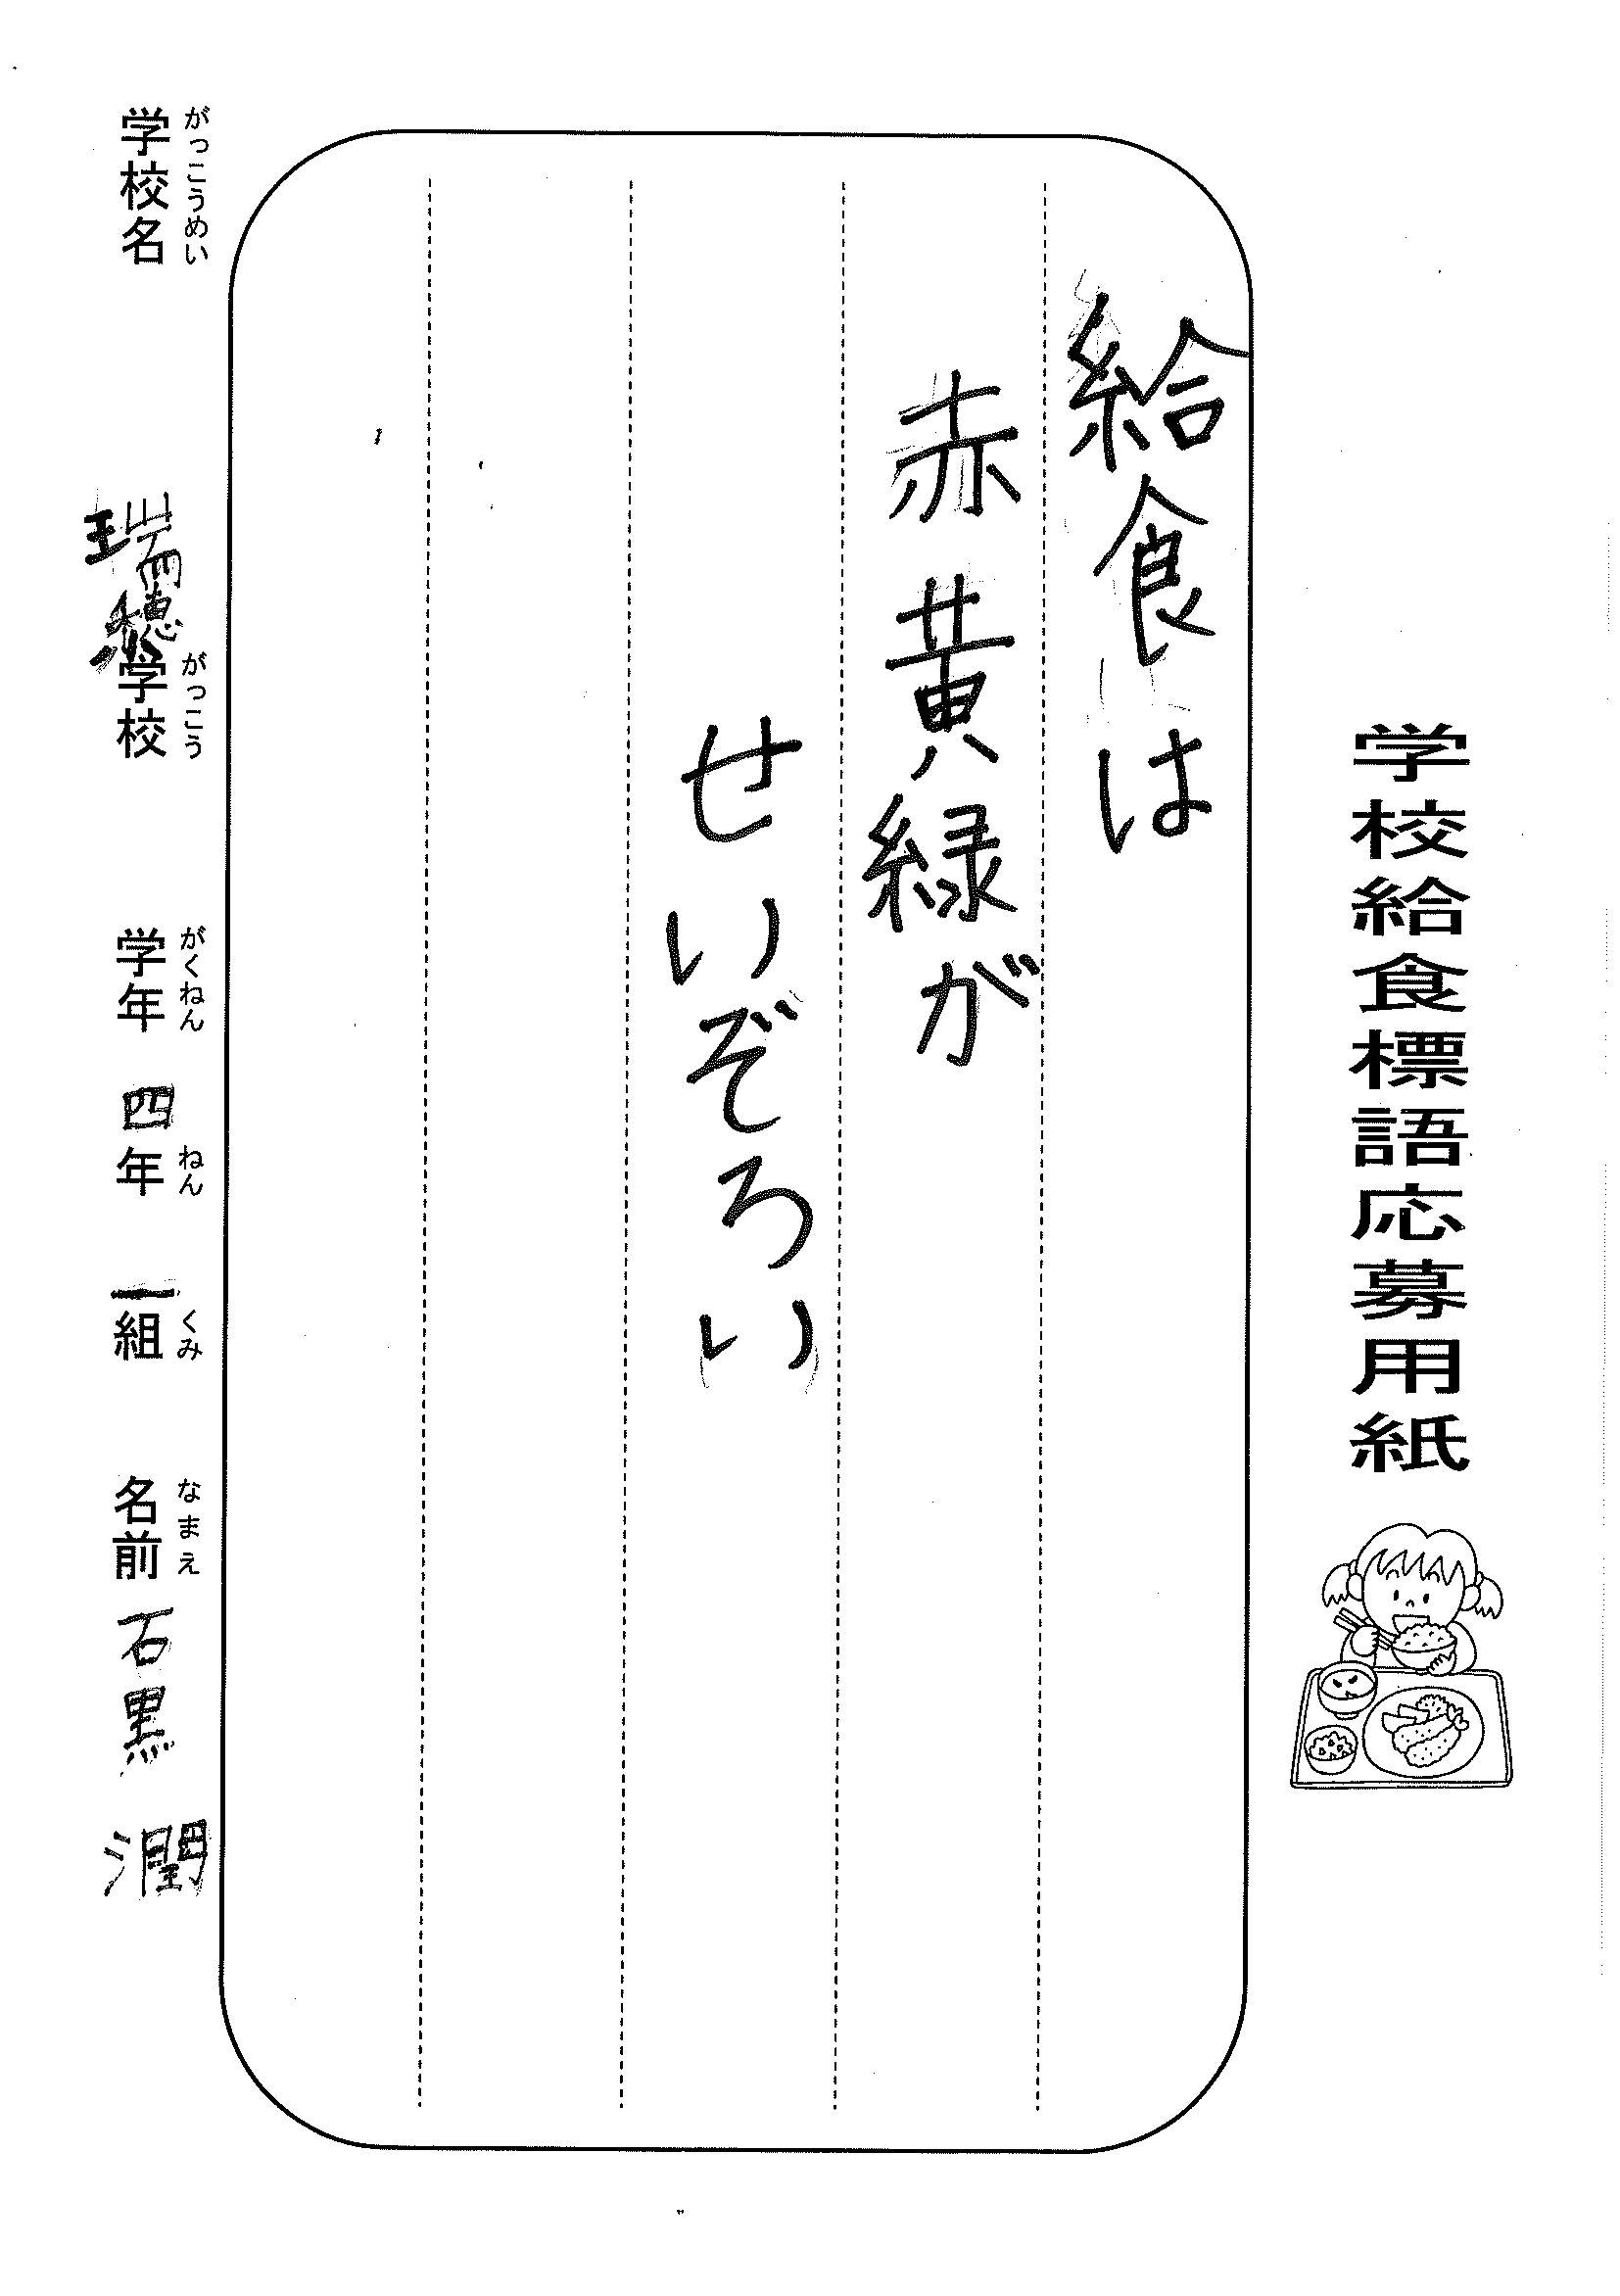 学校給食標語応募用紙
給食は
赤黄緑が
せいぞろい
がっこうめい がっこう がくねん ねん くみ なまえ
学校名 瑞穂学校 学年 四年 一組 名前 石黒 潤